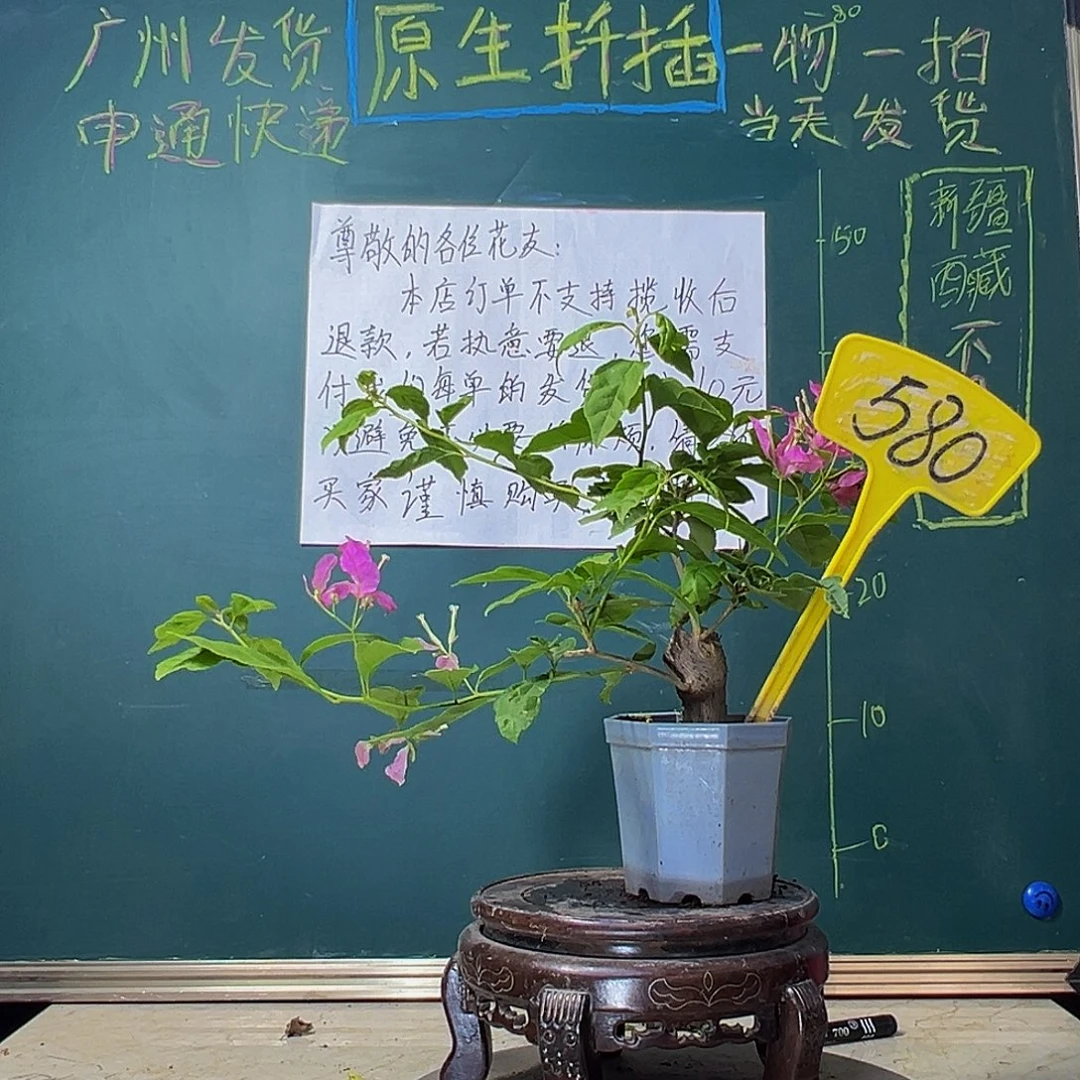 广州发货
原生扦插
一物一拍
申通快递
当天发货
80
50
20
10
0
新疆
西藏
不
尊敬的各位花友:
本店订单不支持揽收后
退款,若执意要退,您需支
付 每单的发 10元
避免
买家谨慎购买
580
700